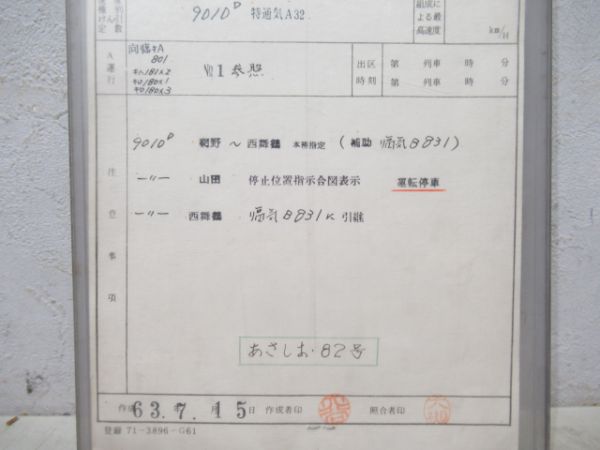 9010D 特通気A32
組成に
よる最
高速度
km/H
A運行
向福キA
801
キハ181×2
キロ180×1
キハ180×3
No1参照
出区 第 列車 時 分
時刻 第 列車 時 分
注意事項
9010D 網野～西舞鶴 本務指定 (補助 福気B831)
―〃― 山田 停止位置指示合図表示 運転停車
―〃― 西舞鶴 福気B831へ引継
あさしお82号
作成 63.7.15日 作成者印 照合者印
登録 71-3896-G61